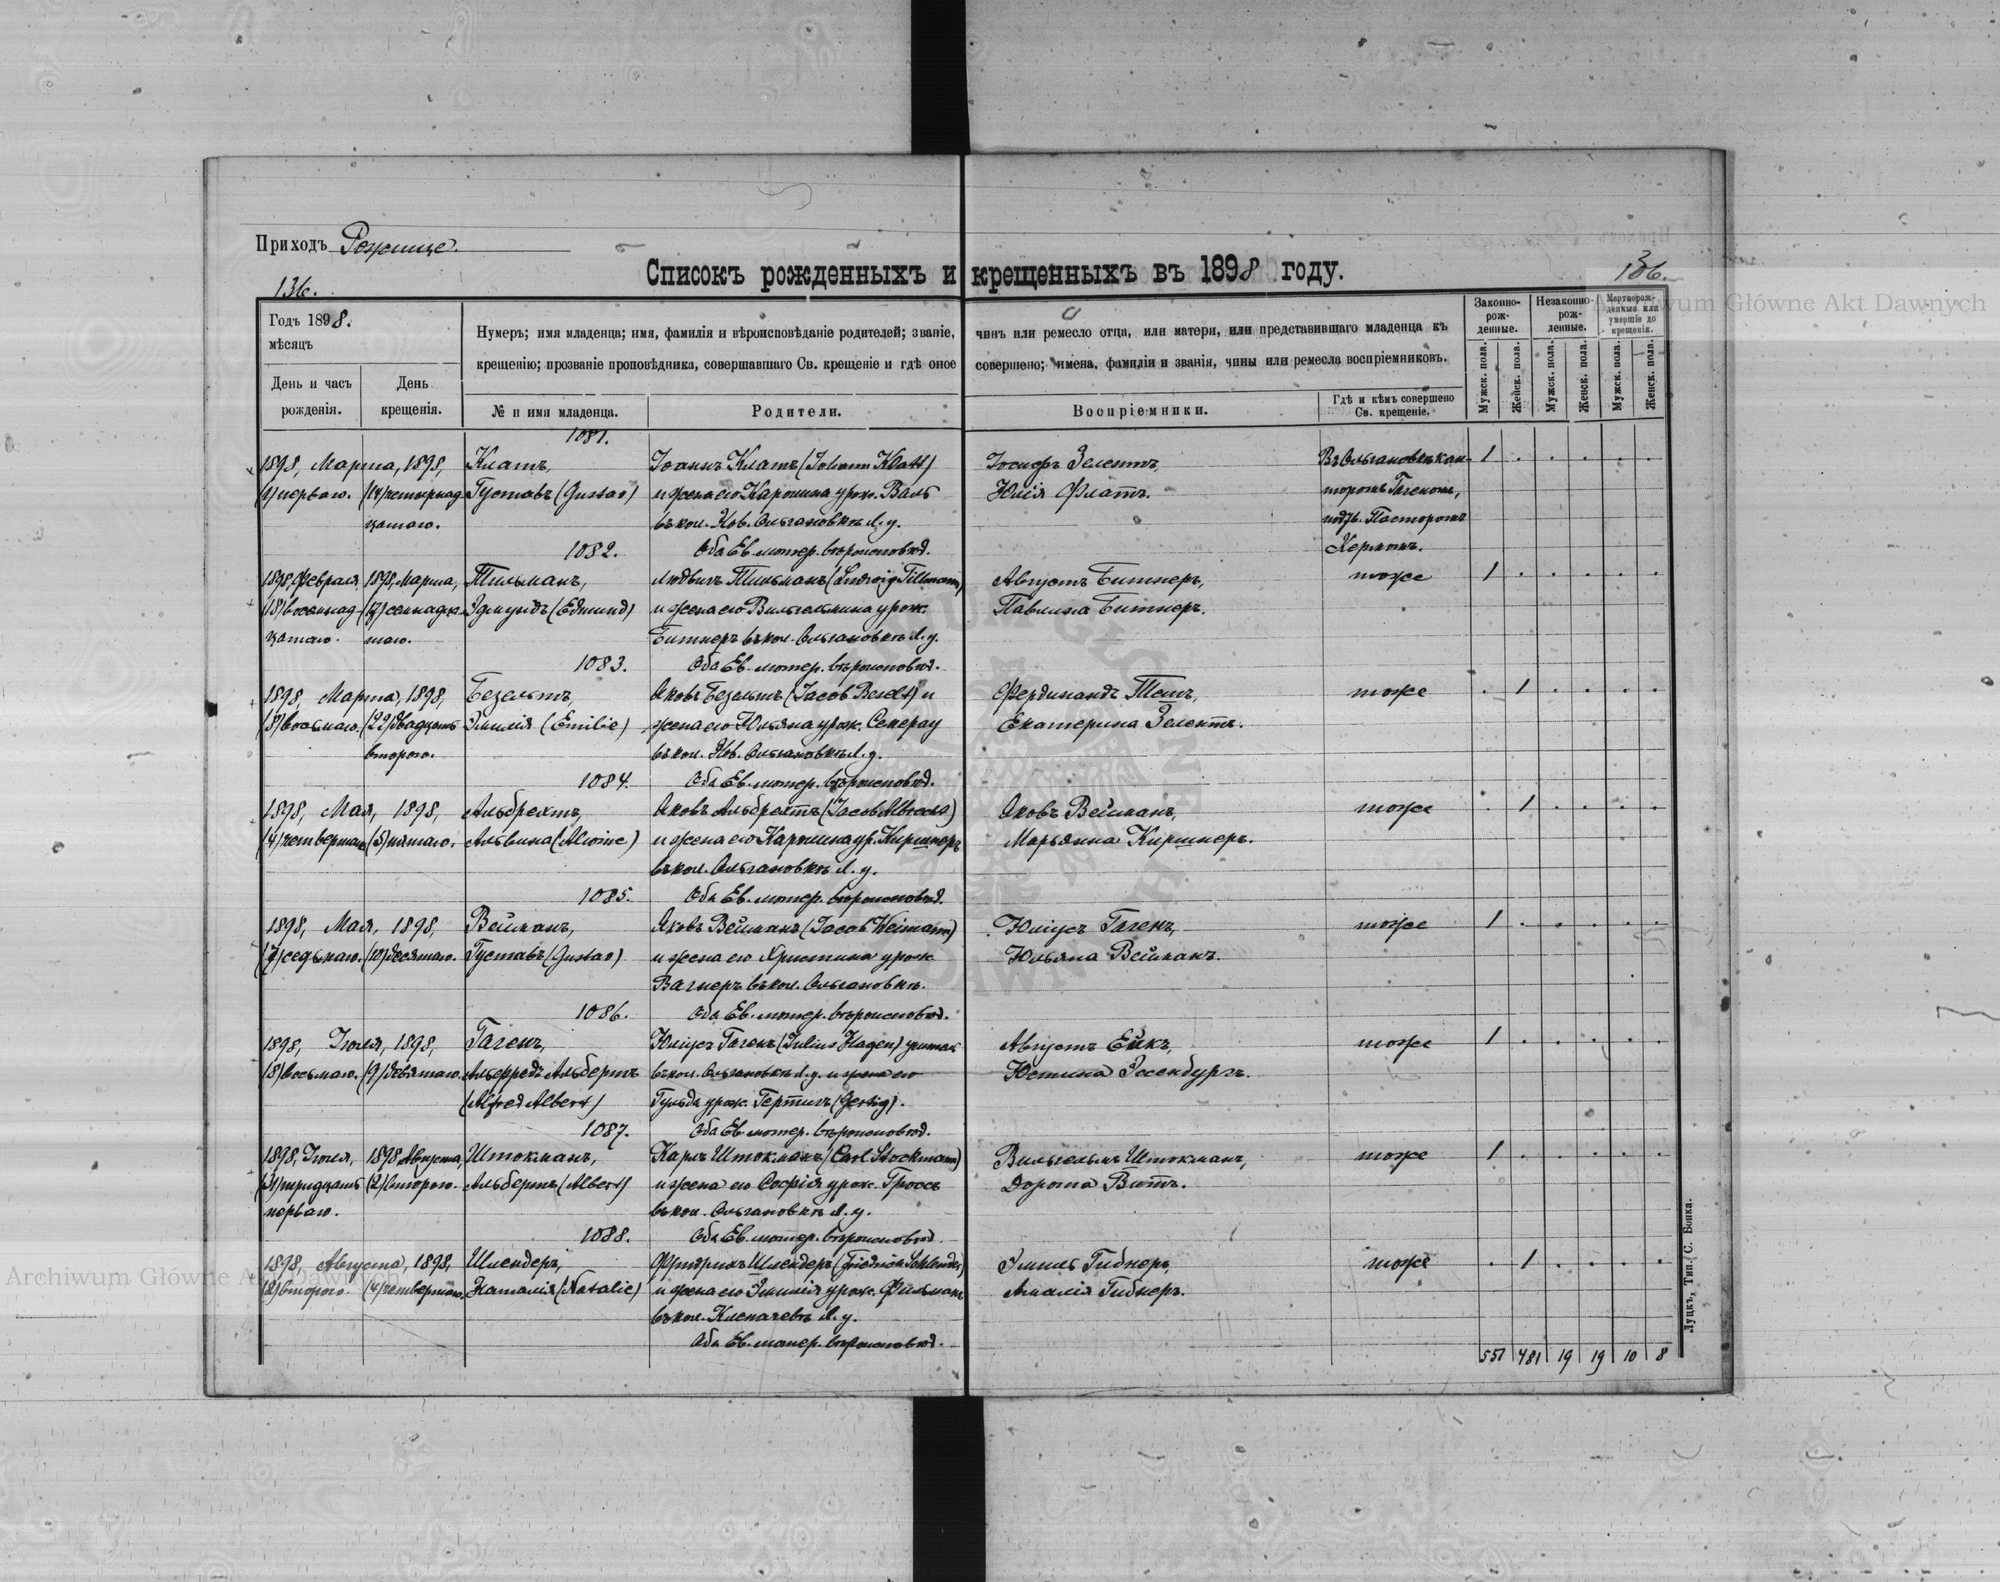 Приходъ Рожище.
Списокъ рожденныхъ и крещенныхъ въ 1898 году.
136.
136.
Archiwum Główne Akt Dawnych
Годъ 1898.
мѣсяцъ
День и часъ рожденія.
День крещенія.
Нумеръ; имя младенца; имя, фамилія и вѣроисповѣданіе родителей; званіе, чинъ или ремесло отца, или матери, или представившаго младенца къ
крещенію; прозваніе проповѣдника, совершавшаго Св. крещеніе и гдѣ оное совершено; имена, фамиліи и званія, чины или ремесла воспріемниковъ.
№ и имя младенца.
Родители.
Воспріемники.
Гдѣ и кѣмъ совершено Св. крещеніе.
Законно-рож-денные.
Незаконно-рож-денные.
Мертворож-денные или умершіе до крещенія.
Мужск. пола.
Женск. пола.
Мужск. пола.
Женск. пола.
Мужск. пола.
Женск. пола.
1081.
1898, Марта, 1898, Клатъ, Іоаннъ Клатъ (Johann Klatt) Іосифъ Зелентъ, Въ Ольгановкѣ кан- 1
(1) перваго. (14) четырнад- Густавъ (Gustav) и жена его Каролина урож. Валь Юлія Флатъ. торомъ Гагеномъ,
цатаго. въ кол. Нов. Ольгановкѣ Л. у. подтв. Пасторомъ
1082. Оба Ев. лютер. вѣроисповѣд. Керномъ.
1898, Февраля 1898, Марта, Тильманъ, Людвигъ Тильманъ (Ludwig Tillmann) Августъ Битнеръ, тоже 1
(18) восемнад- (17) семнадца- Эдмундъ (Edmund) и жена его Вильгельмина урож. Павлина Битнеръ.
цатаго. таго. Битнеръ въ кол. Ольгановкѣ Л. у.
1083. Оба Ев. лютер. вѣроисповѣд.
1898, Марта, 1898, Безельтъ, Яковъ Безельтъ (Jacob Beselt) и Фердинандъ Тешъ, тоже 1
(8) восьмаго. (22) двадцать Эмилія (Emilie) жена его Юльяна урож. Семерау Екатерина Зелентъ.
втораго. въ кол. Нов. Ольгановкѣ Л. у.
1084. Оба Ев. лютер. вѣроисповѣд.
1898, Мая, 1898, Альбрехтъ, Яковъ Альбрехтъ (Jacob Albrecht) Яковъ Вейманъ, тоже 1
(4) четвертаго (5) пятаго. Альвина (Alwine) и жена его Каролина ур. Киршнеръ Марьянна Киршнеръ.
въ кол. Ольгановкѣ Л. у.
1085. Оба Ев. лютер. вѣроисповѣд.
1898, Мая, 1898, Вейманъ, Яковъ Вейманъ (Jacob Weimann) Юліусъ Гагенъ, тоже 1
(7) седьмаго. (10) десятаго. Густавъ (Gustav) и жена его Христина урож. Юльяна Вейманъ.
Вагнеръ въ кол. Ольгановкѣ.
1086. Оба Ев. лютер. вѣроисповѣд.
1898, Іюля, 1898, Гагенъ, Юліусъ Гагенъ (Julius Hagen) учитель Августъ Ейкъ, тоже 1
(8) восьмаго. (9) девятаго. Альфредъ Альбертъ въ кол. Ольгановкѣ Л. у. и жена его Юстина Розенбургъ.
(Alfred Albert) Гульда урож. Гертигъ (Gertig).
1087. Оба Ев. лютер. вѣроисповѣд.
1898, Іюля, 1898 Августа, Штокманъ, Карлъ Штокманъ (Carl Stockmann) Вильгельмъ Штокманъ, тоже 1
(31) тридцать (2) втораго. Альбертъ (Albert) и жена его Софія урож. Гроссъ Дорота Витъ.
перваго. въ кол. Ольгановкѣ Л. у.
1088. Оба Ев. лютер. вѣроисповѣд.
1898, Августа, 1898, Шлендеръ, Фридрихъ Шлендеръ (Friedrich Schlender) Эмиль Гибнеръ, тоже 1
(2) втораго. (4) четвертаго. Наталія (Natalie) и жена его Эмилія урож. Фильманъ Амалія Гибнеръ.
въ кол. Клепачевѣ Л. у.
Оба Ев. лютер. вѣроисповѣд.
551 481 19 19 10 8
Луцкъ, Тип. С. Бонка.
Archiwum Główne Akt Dawnych